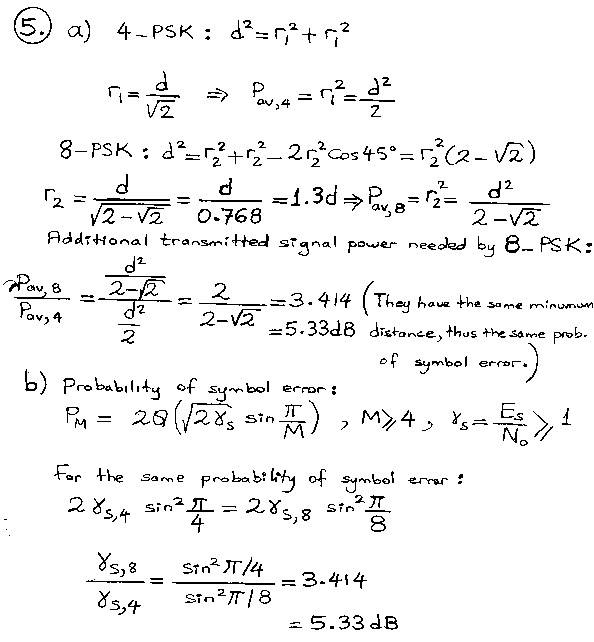 5. a) 4-PSK : d² = r₁² + r₁²
r₁ = d/√2 ⇒ P_av,4 = r₁² = d²/2
8-PSK : d² = r₂² + r₂² - 2r₂² Cos 45° = r₂² (2 - √2)
r₂ = d/√(2-√2) = d/0.768 = 1.3d ⇒ P_av,8 = r₂² = d²/(2-√2)
Additional transmitted signal power needed by 8-PSK :
P_av,8/P_av,4 = (d²/(2-√2))/(d²/2) = 2/(2-√2) = 3.414 (They have the same minumum
= 5.33dB distance, thus the same prob.
of symbol error.)
b) Probability of symbol error :
P_M = 2Q(√(2γ_s) sin π/M) , M ≥ 4 , γ_s = E_s/N_o ≥ 1
For the same probability of symbol error :
2γ_s,4 sin² π/4 = 2γ_s,8 sin² π/8
γ_s,8/γ_s,4 = sin² π/4 / sin² π/8 = 3.414
= 5.33 dB